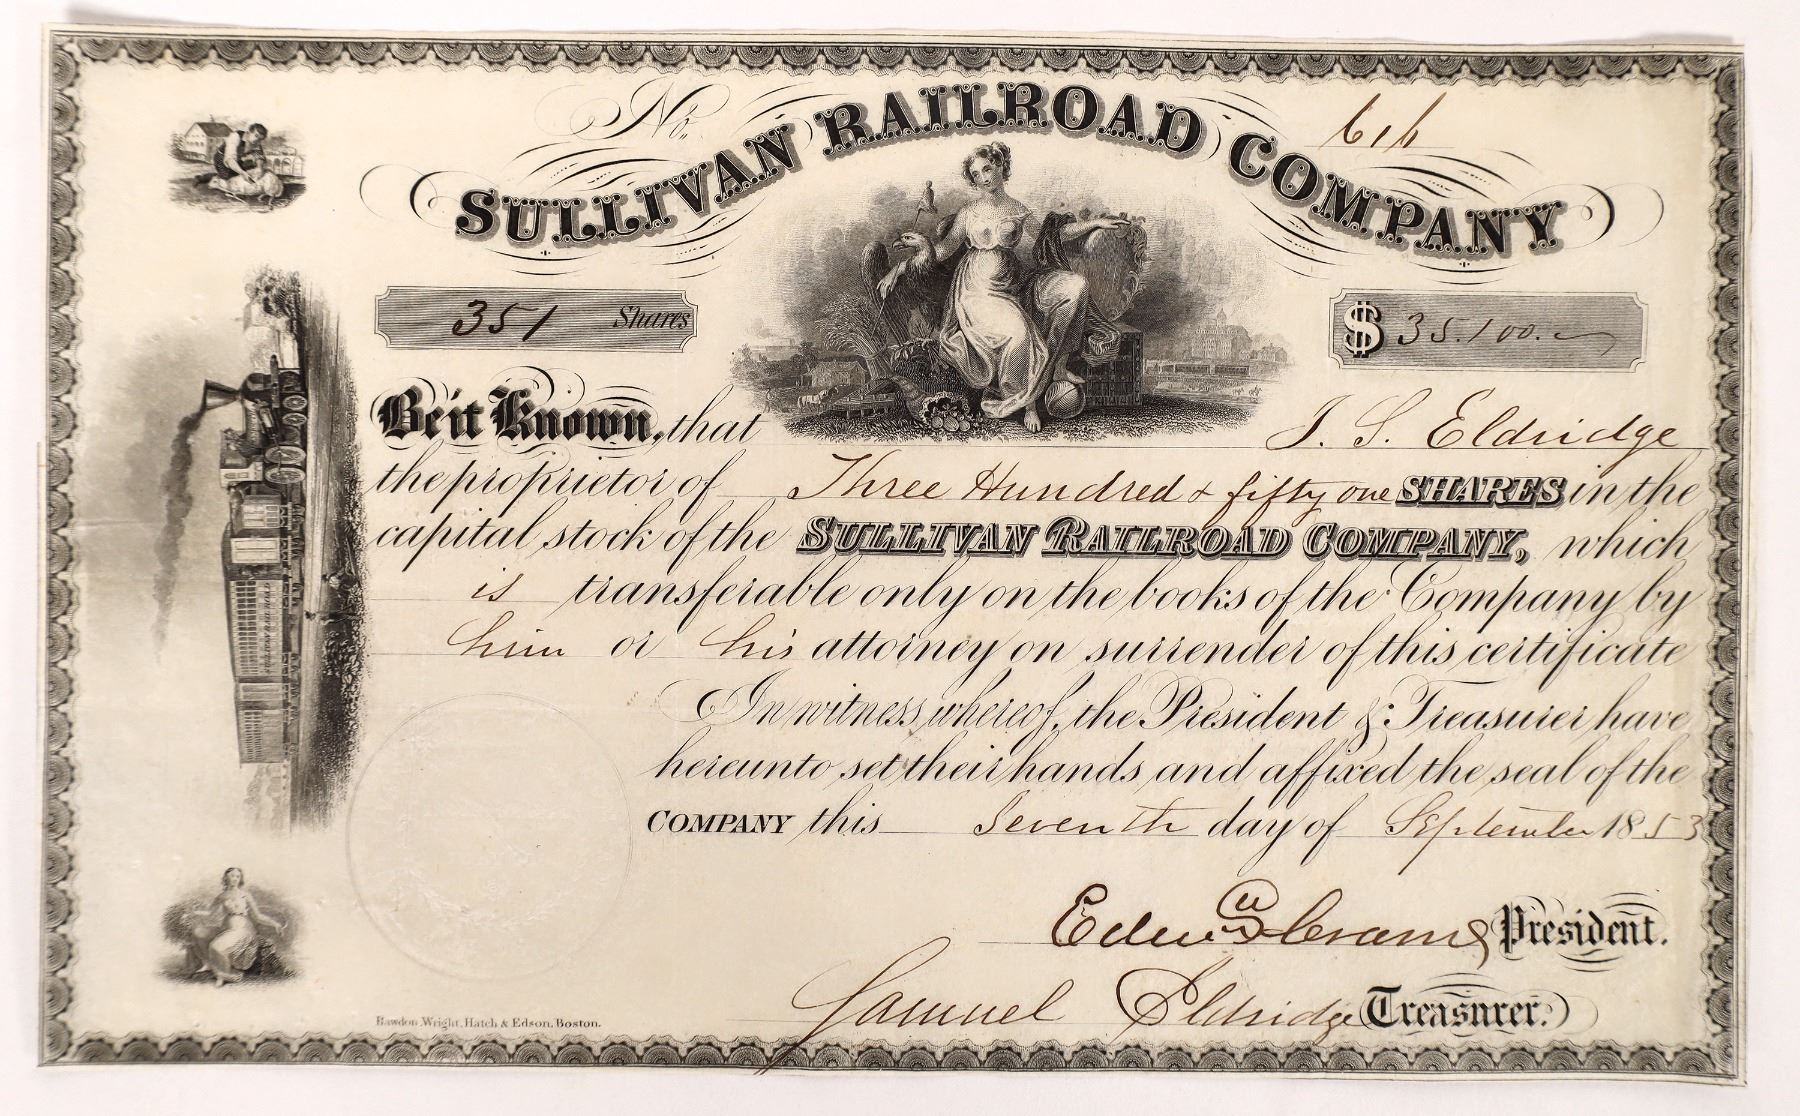 No. 616
SULLIVAN RAILROAD COMPANY
351 Shares
$ 35.100.
Be it Known, that J. S. Eldridge
the proprietor of Three Hundred & fifty one SHARES in the
capital stock of the SULLIVAN RAILROAD COMPANY, which
is transferable only on the books of the Company by
him or his attorney on surrender of this certificate
In witness whereof, the President & Treasurer have
hereunto set their hands and affixed the seal of the
COMPANY this Seventh day of September 1853
President.
Samuel Eldridge Treasurer.
Rawdon, Wright, Hatch & Edson, Boston.